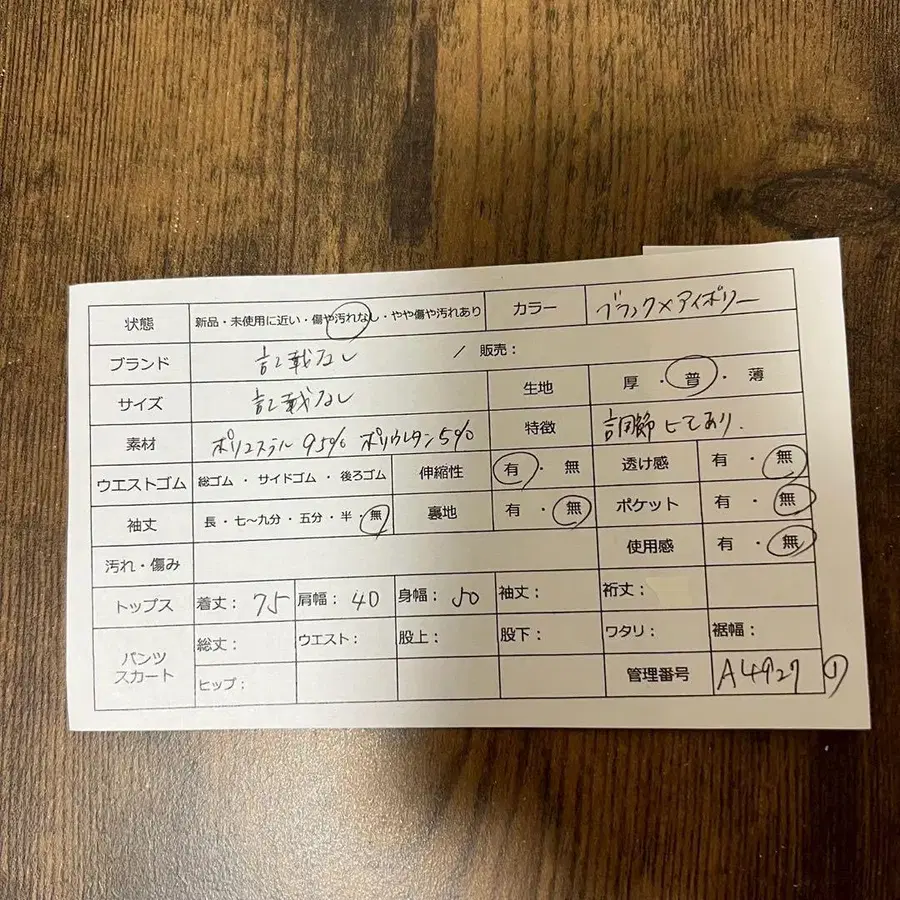 状態 新品・未使用に近い・傷や汚れなし・やや傷や汚れあり カラー ブラック×アイボリー
ブランド 記載なし / 販売：
サイズ 記載なし 生地 厚・普・薄
素材 ポリエステル95% ポリウレタン5% 特徴 調節ヒモあり.
ウエストゴム 総ゴム・サイドゴム・後ろゴム 伸縮性 有・無 透け感 有・無
袖丈 長・七～九分・五分・半・無 裏地 有・無 ポケット 有・無
汚れ・傷み 使用感 有・無
トップス 着丈：75 肩幅：40 身幅：50 袖丈： 裄丈：
パンツ スカート 総丈： ウエスト： 股上： 股下： ワタリ： 裾幅：
ヒップ： 管理番号 A4927